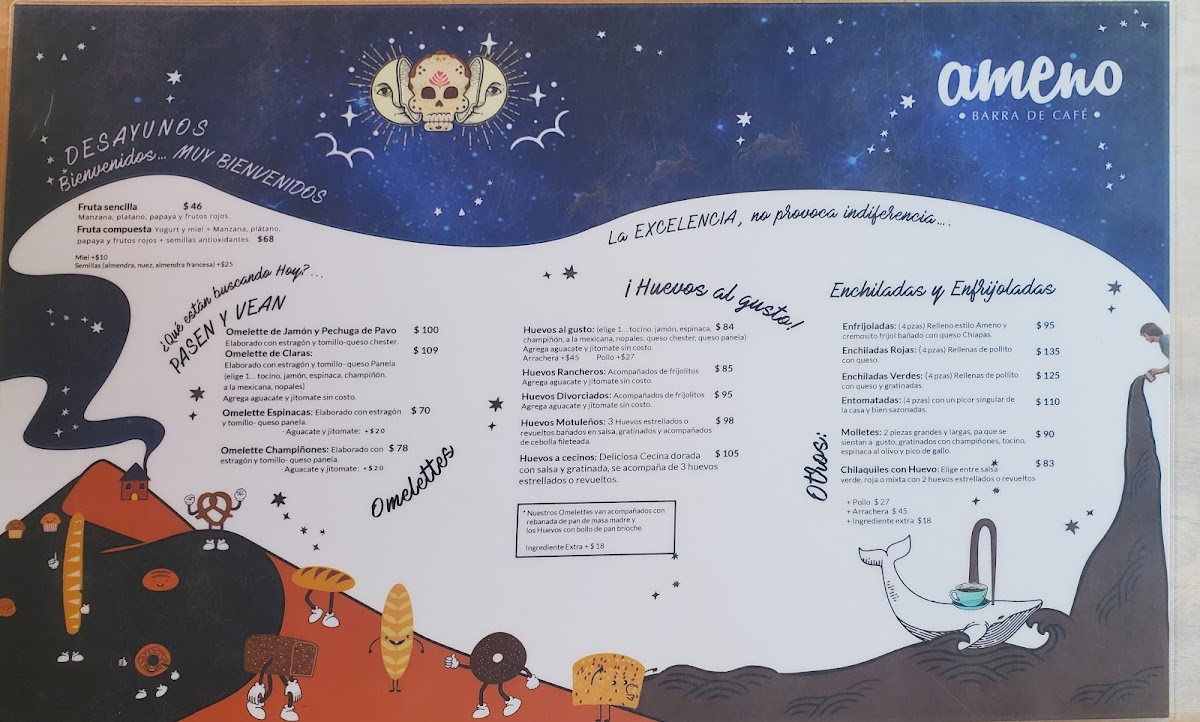 ameno
• BARRA DE CAFÉ •
DESAYUNOS
Bienvenidos... MUY BIENVENIDOS
Fruta sencilla $ 46
Manzana, platano, papaya y frutos rojos.
Fruta compuesta Yogurt y miel + Manzana, plátano,
papaya y frutos rojos + semillas antioxidantes. $68
Miel +$10
Semillas (almendra, nuez, almendra francesa) +$25
La EXCELENCIA, no provoca indiferencia....
¿Qué están buscando Hoy?...
PASEN Y VEAN
Omelette de Jamón y Pechuga de Pavo $ 100
Elaborado con estragón y tomillo-queso chester.
Omelette de Claras: $ 109
Elaborado con estragón y tomillo- queso Panela
(elige 1... tocino, jamón, espinaca, champiñón,
a la mexicana, nopales)
Agrega aguacate y jitomate sin costo.
Omelette Espinacas: Elaborado con estragón $ 70
y tomillo- queso panela.
-Aguacate y jitomate: +$20
Omelette Champiñones: Elaborado con $ 78
estragón y tomillo- queso panela.
-Aguacate y jitomate: +$20
Omelettes
¡Huevos al gusto!
Huevos al gusto: (elige 1... tocino, jamón, espinaca, $ 84
champiñón, a la mexicana, nopales, queso chester, queso panela)
Agrega aguacate y jitomate sin costo.
Arrachera +$45 Pollo +$27
Huevos Rancheros: Acompañados de frijolitos $ 85
Agrega aguacate y jitomate sin costo.
Huevos Divorciados: Acompañados de frijolitos $ 95
Agrega aguacate y jitomate sin costo.
Huevos Motuleños: 3 Huevos estrellados o $ 98
revueltos bañados en salsa, gratinados y acompañados
de cebolla fileteada.
Huevos a cecinos: Deliciosa Cecina dorada $ 105
con salsa y gratinada, se acompaña de 3 huevos
estrellados o revueltos.
* Nuestros Omelettes van acompañados con
rebanada de pan de masa madre y
los Huevos con bollo de pan brioche.
Ingrediente Extra + $ 18
Enchiladas y Enfrijoladas
Enfrijoladas: (4 pzas) Relleno estilo Ameno y $ 95
cremosito frijol bañado con queso Chiapas.
Enchiladas Rojas: (4 pzas) Rellenas de pollito $ 135
con queso.
Enchiladas Verdes: (4 pzas) Rellenas de pollito $ 125
con queso y gratinadas.
Entomatadas: (4 pzas) con un picor singular de $ 110
la casa y bien sazonadas.
Otros:
Molletes: 2 piezas grandes y largas, pa que se $ 90
sientan a gusto, gratinados con champiñones, tocino,
espinaca al olivo y pico de gallo.
Chilaquiles con Huevo: Elige entre salsa $ 83
verde, roja o mixta con 2 huevos estrellados o revueltos
+ Pollo $ 27
+ Arrachera $ 45
+ Ingrediente extra $18